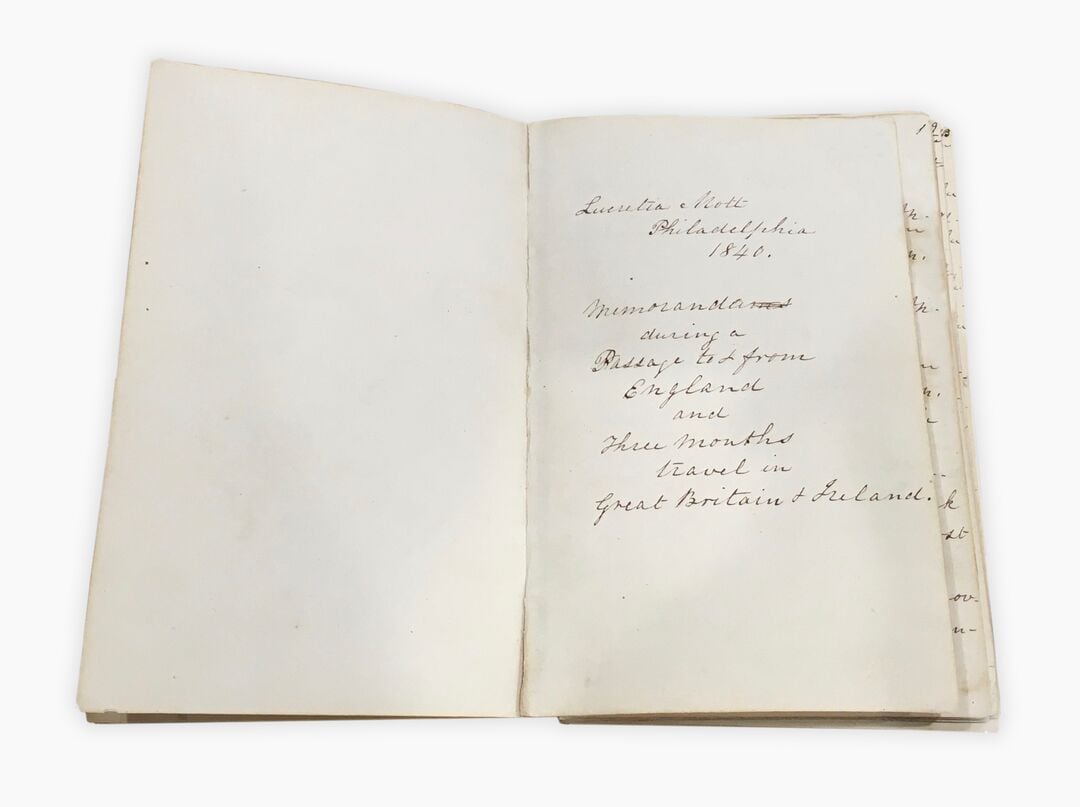 Lucretia Mott
Philadelphia
1840.
Memoranda
during a
Passage to & from
England
and
Three Months
travel in
Great Britain & Ireland.